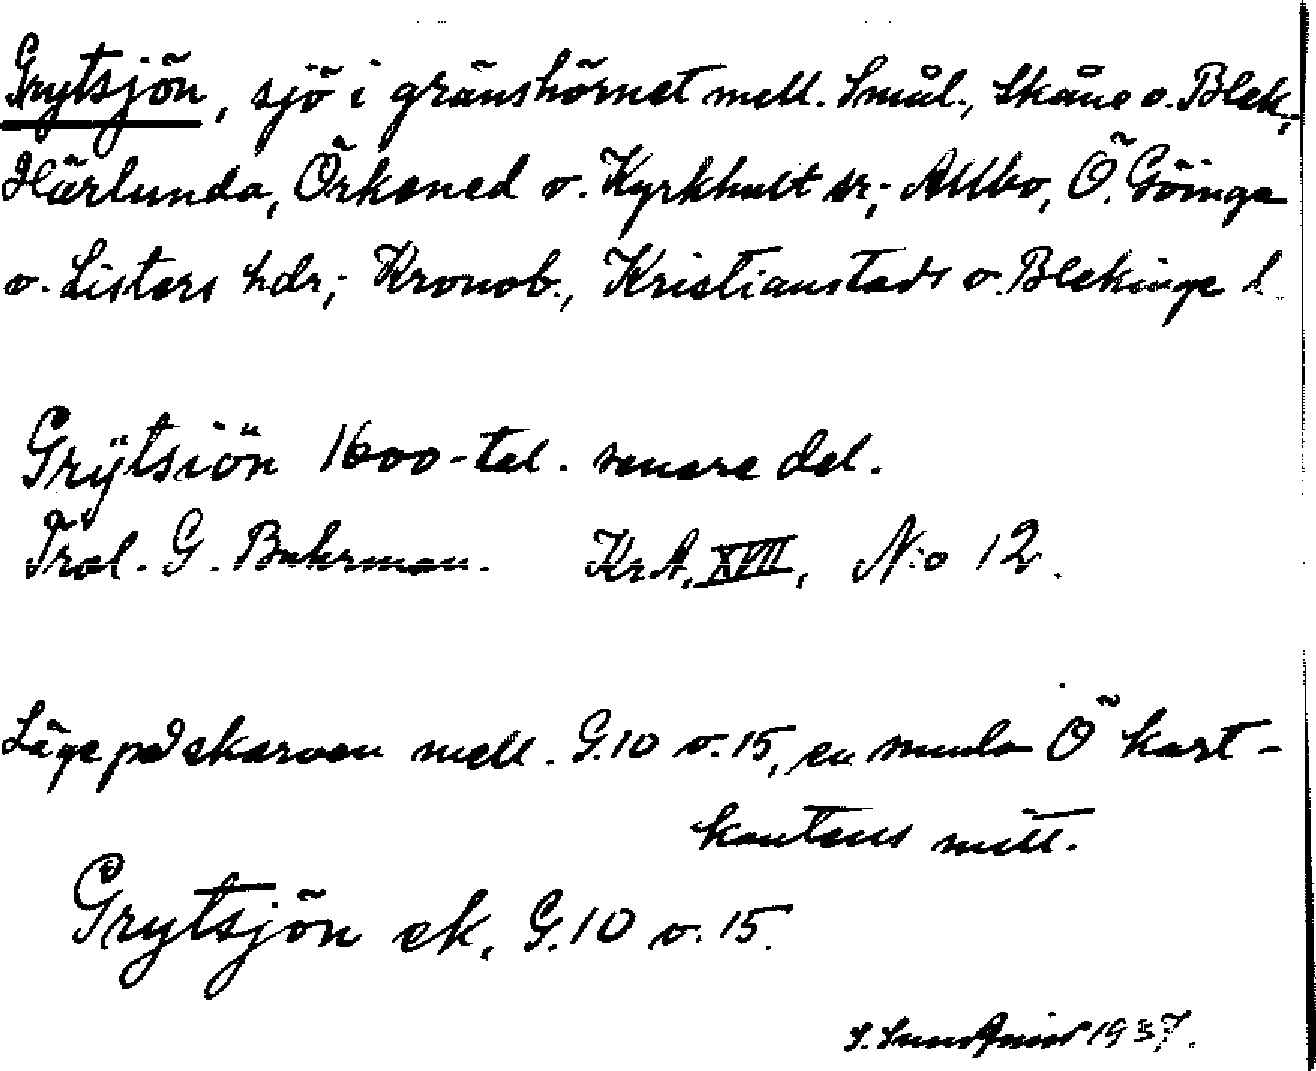 Grytsjön, sjö i gränshörnet mell. Smål., Skåne o. Blek.,
Härlunda, Örkened o. Kyrkhult sr; Allbo, Ö. Göinge
o. Listers hdr; Kronob., Kristianstads o. Blekinge l.
Grÿtsiön 1600-tal. senare del.
Trol. G. Buhrman. KrA, XVII, N:o 12.
Läge på skarven mell. G.10 o. 15, en smula Ö kart-
kantens mitt.
Grytsjön ek, G.10 o. 15.
1937.